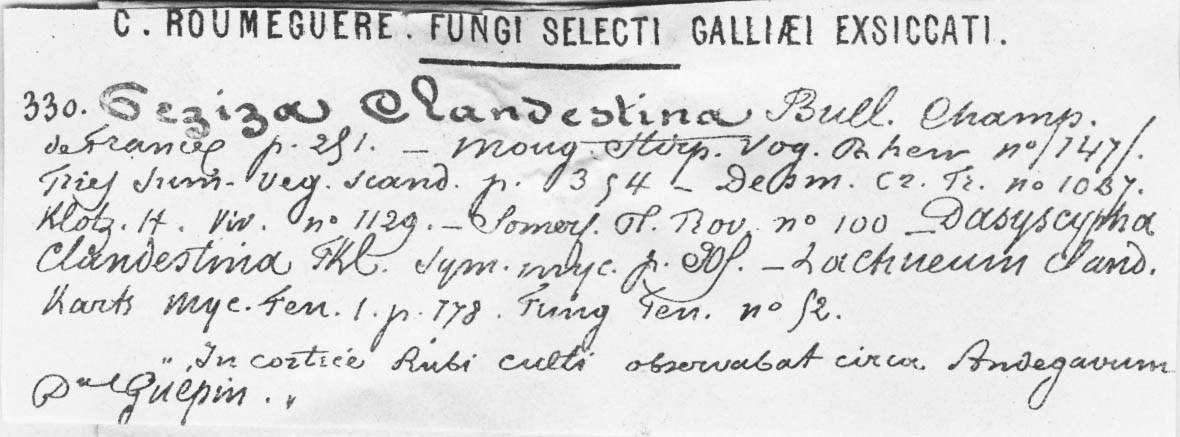 C. ROUMEGUERE. FUNGI SELECTI GALLIÆI EXSICCATI.
330. Peziza Clandestina Bull. Champ.
de France p. 251. — Moug. Stirp. Vog. Rhen nº 1147.
Fries Sum. Veg. Scand. p. 354 — Desm. Cr. Fr. nº 1087.
Klotz. H. Viv. nº 1129. — Somerf. Pl. Nov. nº 100 — Dasyscypha
Clandestina Fkl. Sym. myc. p. — Lachneum Cland.
Karts Myc. Fen. 1. p. 178. Fung Fen. nº 52.
„ In cortice Rubi culti observabat circa Andegavum
Guepin. „